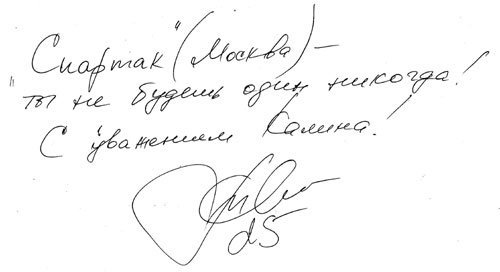 "Спартак" (Москва) –
ты не будешь один никогда!
С уважением Калина!